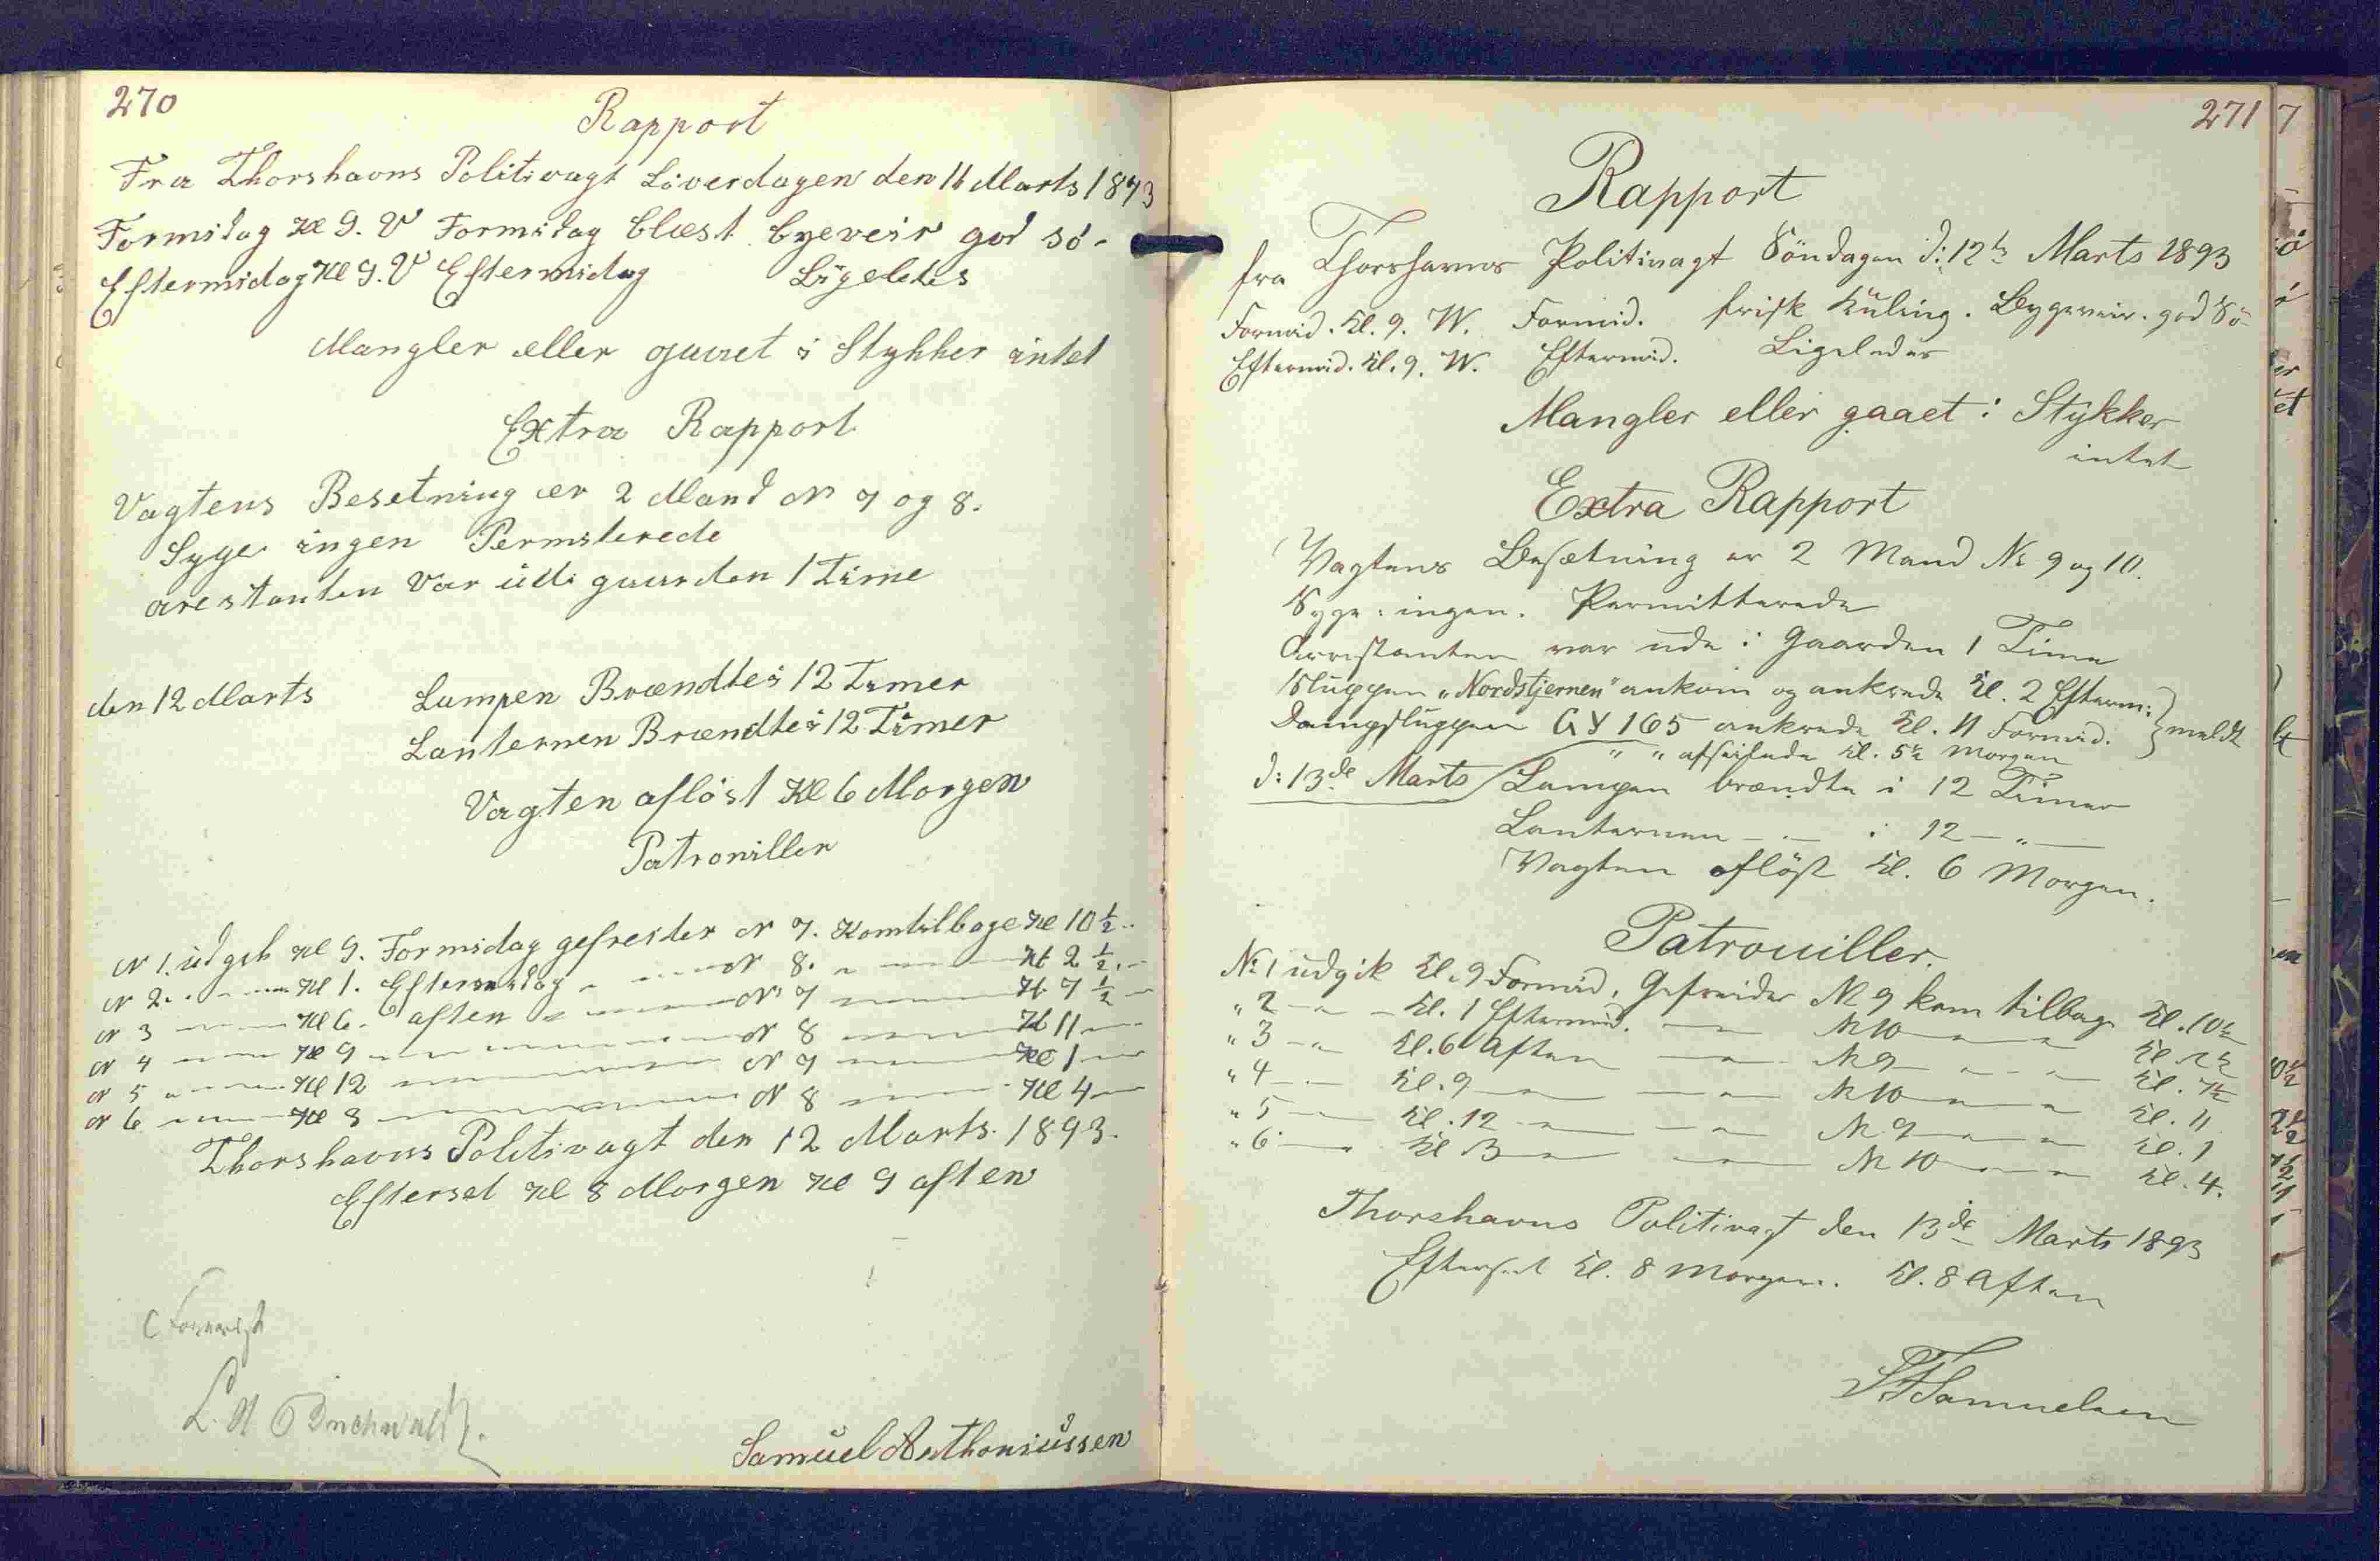 270
Rapport
Fra Thorshavns Politivagt Löverdagen den 11 Marts 1893
Formidag Kl 9. V Formidag blæst byeveir god sö-
Eftermidag Kl 9. V Eftermidag Ligeledes
Mangler eller gaaet i Stykker intet
Extra Rapport
Vagtens Besetning er 2 Mand N 7 og 8.
Syge ingen Permiterede
arestanten var üdi gaarden 1 Time
den 12 Marts Lampen Brændte i 12 Timer
Lanternen Brændte i 12 Timer
Vagten aflöst Kl 6 Morgen
Patroviller
N 1. üdgik Kl 9. Formidag gefreider N 7. Kom tilbage Kl 10 1/2
N 2. Kl 1. Eftermidag N 8. Kl 2 1/2
N 3 Kl 6. aften N 7 Kl 7 1/2
N 4 Kl 9 N 8 Kl 11
N 5 Kl 12 N 7 Kl 1
N 6 Kl 3 N 8 Kl 4
Thorshavns Politivagt den 12 Marts 1893.
Efterset Kl 8 Morgen Kl 9 aften
L. H Buchwaldt.
Samüel Anthoniüssen
271
Rapport
fra Thorshavns Politivagt Söndagen d: 12te Marts 1893
Formid. Kl. 9. W. Formid. frisk Kuling. Bygeveir. god Sö
Eftermid. Kl. 9. W. Eftermid. Ligeledes
Mangler eller gaaet i Stykker
intet
Extra Rapport
Vagtens Besætning er 2 Mand No 9 og 10.
Syge: ingen. Permitterede
Arrestanten var ude i Gaarden 1 Time
Sluppen "Nordstjernen" ankom og ankrede Kl. 2 Efterm:
Dampsluppen GY 165 ankrede Kl. 11 Formid. } meldt
" " afseilede Kl. 5 1/2 Morgen
d: 13de Marts Lampen brændte i 12 Timer
Lanternen — — i 12 — " —
Vagten aflöst Kl. 6 Morgen.
Patrouiller.
No 1 udgik Kl. 9 Formid. Gefreider No 9 kom tilbage Kl. 10 1/2
" 2 — " — Kl. 1 Eftermid. — " — No 10 — " — Kl. 2 1/2
" 3 — " Kl. 6 Aften — " — No 9 — " — Kl. 7 1/2
" 4 — " — Kl. 9 — " — No 10 — " — Kl. 11
" 5 — " — Kl. 12 — " — No 9 — " — Kl. 1
" 6 — " Kl 3 — " — No 10 — " — Kl. 4.
Thorshavns Politivagt den 13de Marts 1893
Efterset Kl. 8 Morgen. Kl. 8 Aften
Samuelsen